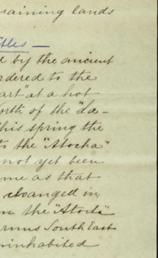 maining lands
ttles —
d by the ancient
rdered to the
art" at a hot
orth of the "La-
this spring the
to the "Atocha"
not yet been
me as that
changed in
n the "Atocha"
rmns South East
ninhabited